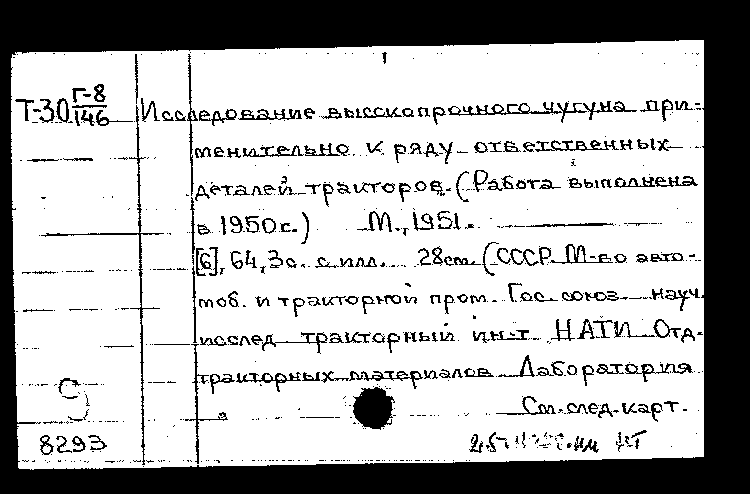 Т-30 Г-8/146 Исследование высокопрочного чугуна при-
менительно к ряду ответственных
деталей тракторов. (Работа выполнена
в 1950г.) М., 1951.
[6], 64, 3с. с илл. 28см. (СССР. М-во авто-
моб. и тракторной пром. Гос. союз. науч.
исслед. тракторный ин-т НАТИ. Отд.
тракторных материалов. Лаборатория
См. след. карт.
8293